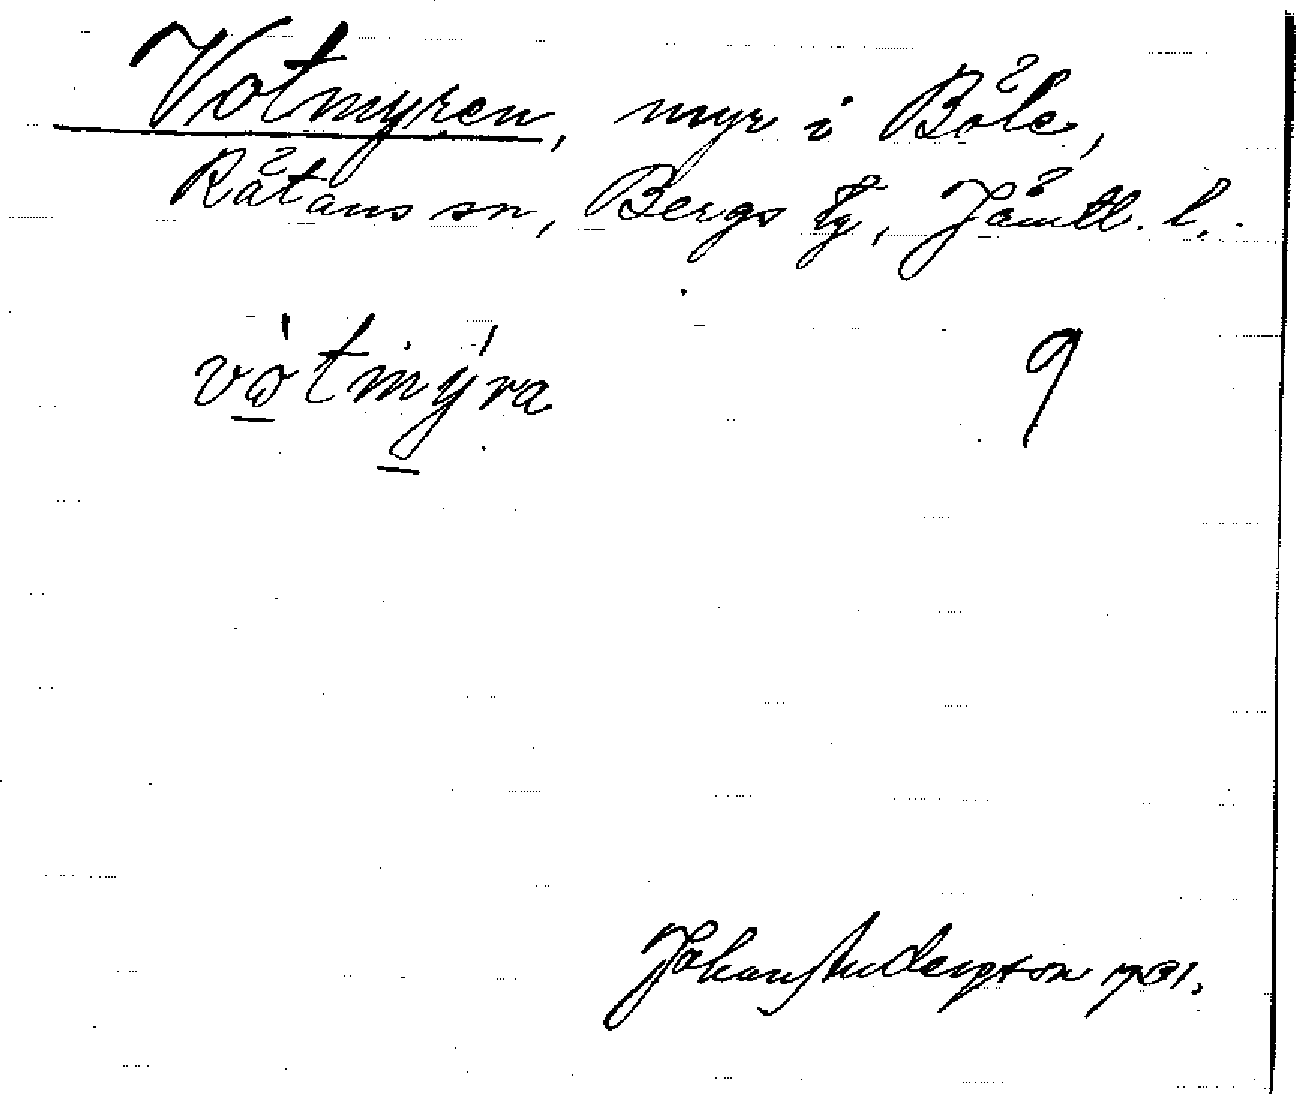 Votmyren, myr i Böle,
Rätans sn, Bergs tg, Jämtl. l.
vòtmýra 9
Johan Anderzson 1931.